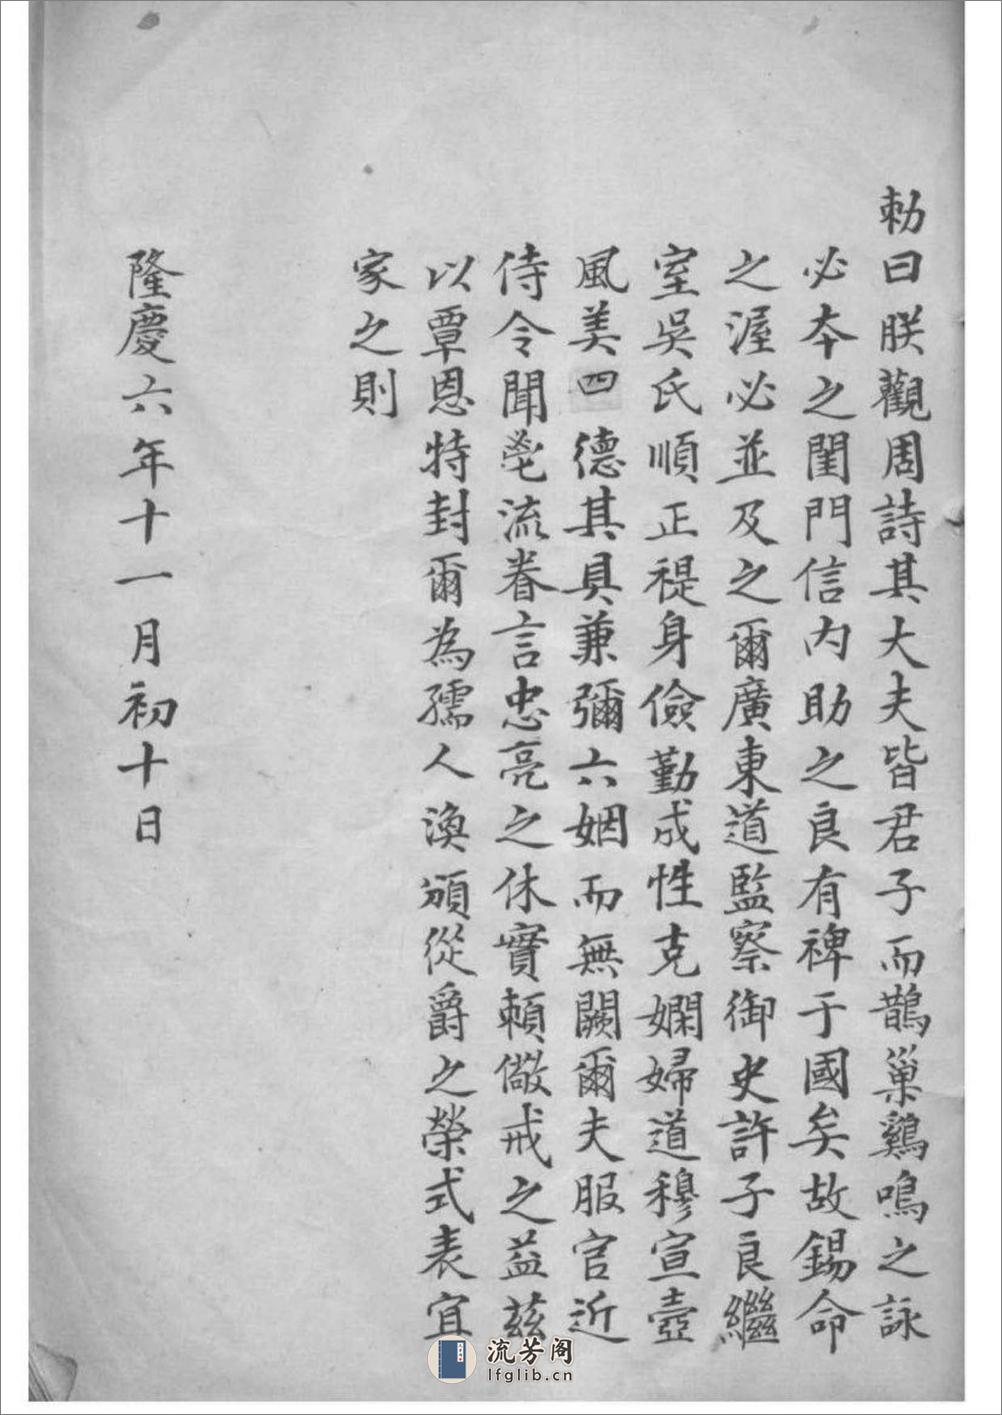 勑曰朕觀周詩其大夫皆君子而鵲巢鷄鳴之詠
必本之閨門信内助之良有裨于國矣故錫命
之渥必並及之爾廣東道監察御史許子良繼
室吳氏順正禔身儉勤成性克嫻婦道穆宣壼
風美四德其具兼彌六姻而無闕爾夫服官近
侍令聞茂流眷言忠亮之休實賴儆戒之益茲
以覃恩特封爾為孺人渙頒從爵之榮式表宜
家之則
隆慶六年十一月初十日
流芳阁
lfglib.cn